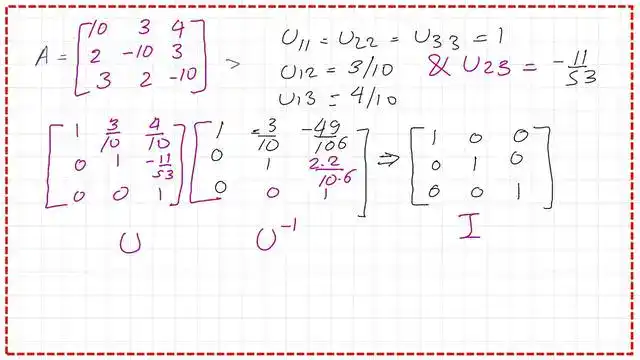 A = [10 3 4
2 -10 3
3 2 -10] >
U11 = U22 = U33 = 1
U12 = 3/10 & U23 = -11/53
U13 = 4/10
[1 3/10 4/10
0 1 -11/53
0 0 1] [1 -3/10 -49/106
0 1 2.2/10.6
0 0 1] ⇒ [1 0 0
0 1 0
0 0 1]
U U⁻¹ I